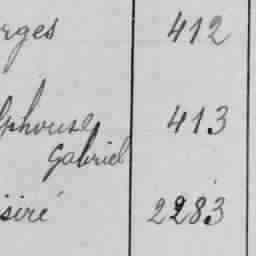 rges 412
lphonse 413
Gabriel
siré 2283